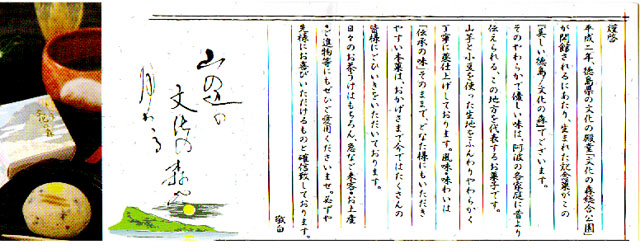 謹啓
平成二年、徳島県の文化の殿堂「文化の森総合公園」
が開館されるにあたり、生まれた記念菓がこの
「美しい徳島/文化の森」でございます。
そのやわらかで優しい味は、阿波の各家庭に昔より
伝えられる、この地方を代表するお菓子です。
山芋と小豆を使った生地をふんわりやわらかく
丁寧に蒸仕上げしております。風味・味わいは
「伝承の味」そのままで、どなた様にもいただき
やすい本菓は、おかげさまで今ではたくさんの
皆様にごひいきをいただいております。
日々のお茶うけはもちろん、急なご来客・お土産
・ご進物等にもぜひご愛用くださいませ。必ずや
皆様にお喜びいただけるものと確信致しております。
敬白
山の辺の
文化の森